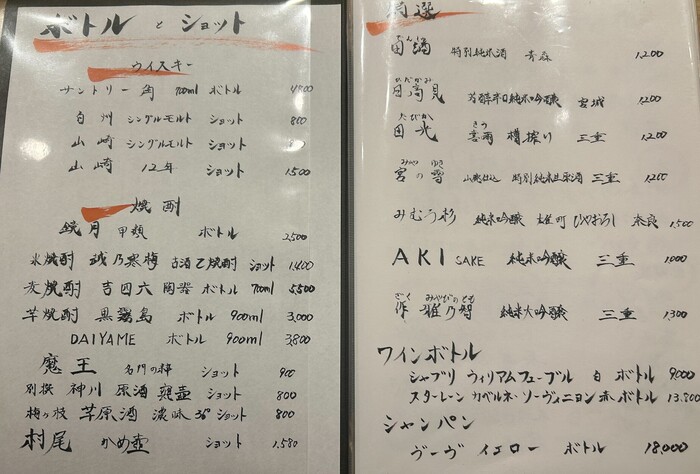 ボトル と ショット
ウイスキー
サントリー 角 700ml ボトル
白州 シングルモルト ショット
山崎 シングルモルト ショット
山崎 12年 ショット 1,500
焼酎
鏡月 甲類 ボトル 2,500
米焼酎 越乃寒梅 古酒乙焼酎 ショット 1,400
麦焼酎 吉四六 陶器 ボトル 700ml 5,500
芋焼酎 黒霧島 ボトル 900ml 3,000
DAIYAME ボトル 900ml 3,800
魔王 名門の粋 ショット 900
別撰 神川 原酒 甕壷 ショット 800
梅ヶ枝 芋原酒 濃味 36° ショット 800
村尾 かめ壷 ショット 1,580
特選
田酒 特別純米酒 青森 1,200
ひだかみ
日高見 芳醇辛口純米吟醸 宮城 1,200
たびか
田光 喜雨 槽搾り 三重 1,200
みや ゆき
宮の雪 山廃仕込 特別純米生原酒 三重 1,200
みむろ杉 純米吟醸 雄町 ひやおろし 奈良 1,500
AKI SAKE 純米吟醸 三重 1000
ざく みやびのとも
作 雅乃智 純米大吟醸 三重 1,300
ワインボトル
シャブリ ウィリアムフェーブル 白 ボトル 9,000
スターレーン カベルネ・ソーヴィニヨン 赤 ボトル 13,800
シャンパン
ヴーヴ イエロー ボトル 18,000